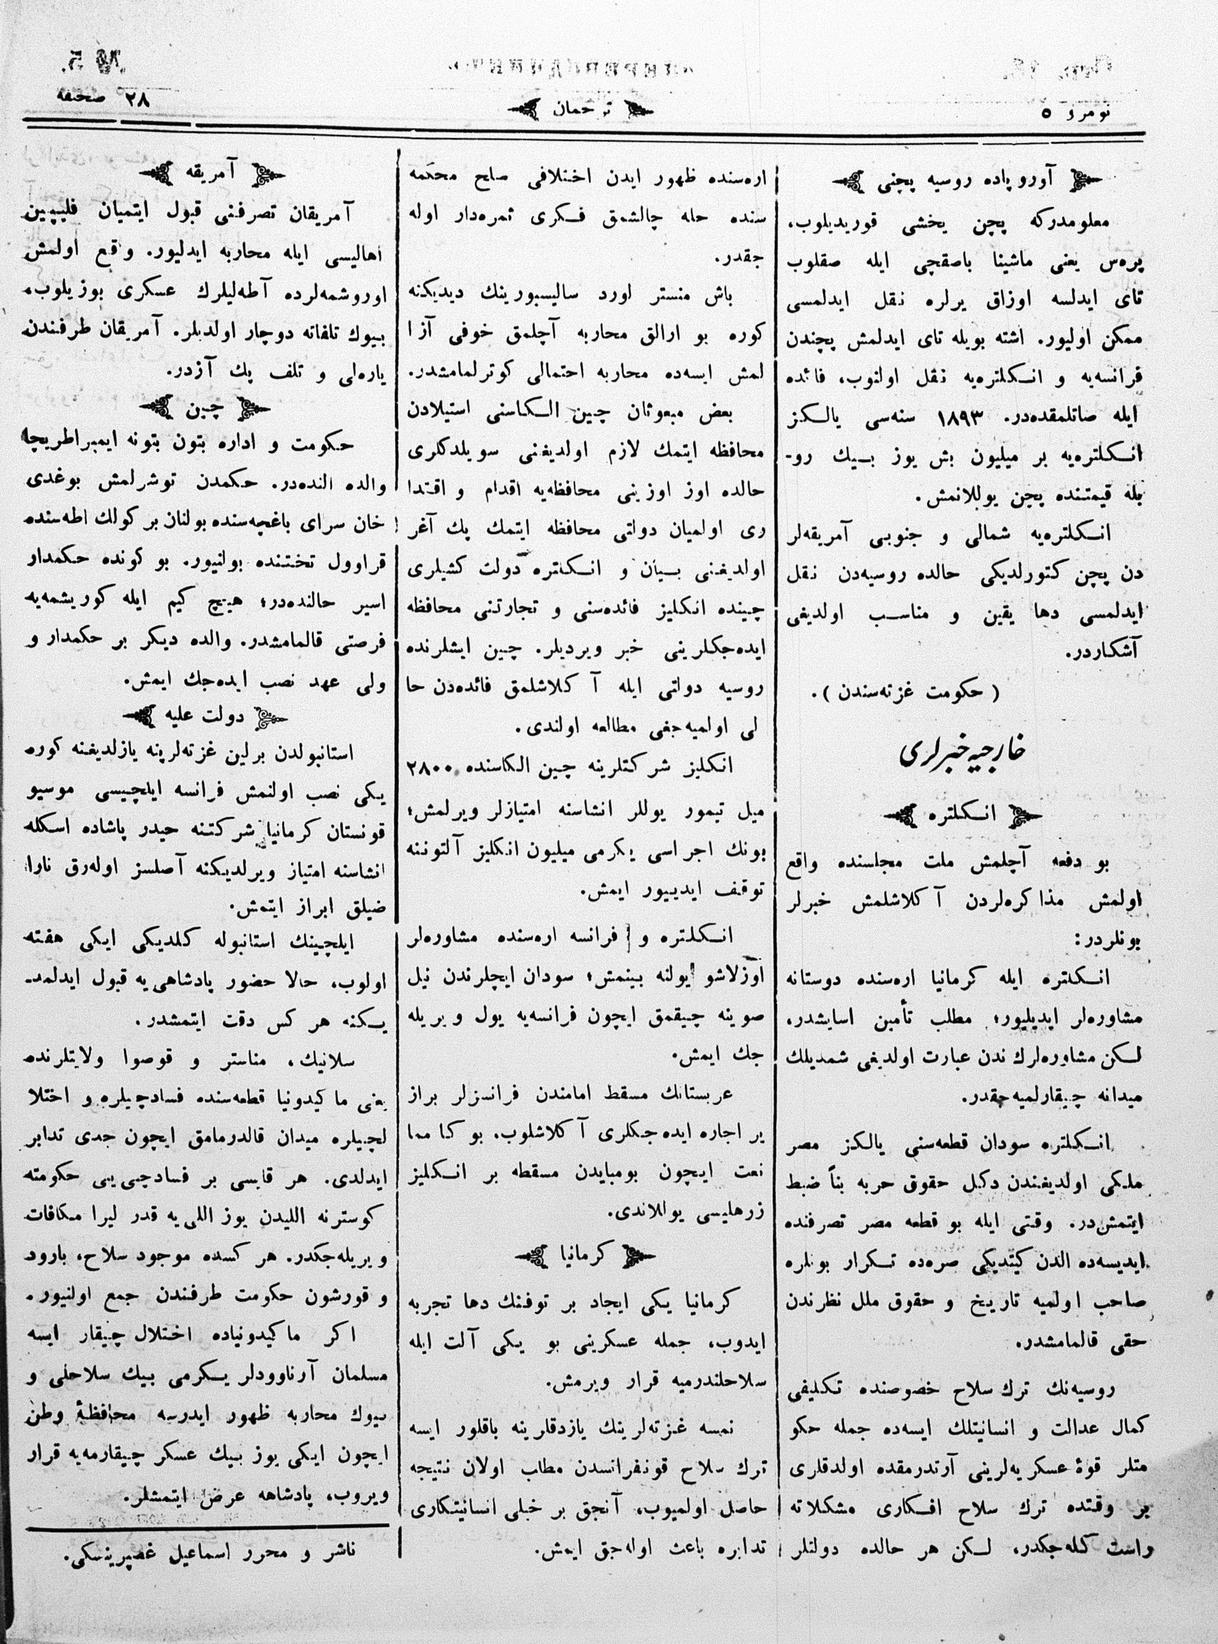 نومرو ٥
ترجمان
٢٨ صحیفه
آوروپاده روسیه پچنی
معلومدركه پچن یخشی قوریدیلوب،
پرەس یعنی ماشینا باصقچی ایله صقلوب
تای ایدلسه اوزاق یرلره نقل ایدلمسی
ممكن اولیور. اشته بویله تای ایدلمش پچندن
فرانسەیه و انكلترەیه نقل اولنوب، فائده
ایله صاتلمقدەدر. ١٨٩٣ سنەسی یالكز
انكلترەیه بر میلیون بش یوز بیك رو-
بله قیمتنده پچن یوللانمش.
انكلترەیه شمالی و جنوبی آمریقەلر
دن پچن كتورلدیكی حالده روسیەدن نقل
ایدلمسی دها یقین و مناسب اولدیغی
آشكاردر.
( حكومت غزتەسندن ).
خارجیه خبرلری
انكلتره
بو دفعه آچلمش ملت مجلسنده واقع
اولمش مذاكرەلردن آكلاشلمش خبرلر
بونلردر:
انكلتره ایله كرمانیا ارەسنده دوستانه
مشاورەلر ایدیلیور؛ مطلب تأمین اسایشدر،
لكن مشاورەلرك ندن عبارت اولدیغی شمدیلك
میدانه چیقارلمیەجقدر.
انكلتره سودان قطعەسنی یالكز مصر
ملكی اولدیغندن دكل حقوق حربه بناً ضبط
ایتمش در. وقتی ایله بو قطعه مصر تصرفنده
ایدیسەده الدن كیتدیكی صرەده تكرار بونلره
صاحب اولمیه تاریخ و حقوق ملل نظرندن
حقی قالمامشدر.
روسیەنك ترك سلاح خصوصنده تكلیفی
كمال عدالت و انسانیتلك ایسەده جمله حكو
متلر قوۀ عسكریەلرینی آرتدرمقده اولدقلری
بر وقتده ترك سلاح افكاری مشكلاته
راست كلەجكدر، لكن هر حالده دولتلر
ارەسنده ظهور ایدن اختلافی صلح محكمه
سنده حله چالشمق فكری ثمرەدار اوله
جقدر.
باش منستر لورد سالیسبورینك دیدیكنه
كوره بو ارالق محاربه آچلمق خوفی آزا
لمش ایسەده محاربه احتمالی كوترلمامشدر.
بعض مبعوثان چین الكاسنی استیلادن
محافظه ایتمك لازم اولدیغنی سویلدكلری
حالده اوز اوزینی محافظەیه اقدام و اقتدا
ری اولمیان دولتی محافظه ایتمك پك آغر
اولدیغنی بیان و انكلتره دولت كشیلری
چینده انكلیز فائدەسنی و تجارتنی محافظه
ایدەجكلرینی خبر ویردیلر. چین ایشلرنده
روسیه دولتی ایله آكلاشلمق فائدەدن خا
لی اولمیەجغی مطالعه اولندی.
انكلیز شركتلرینه چین الكاسنده ٢٨٠٠
میل تیمور یوللر انشاسنه امتیازلر ویرلمش؛
بونك اجراسی یكرمی میلیون انكلیز آلتوننه
توقف ایدییور ایمش.
انكلتره و فرانسه ارەسنده مشاورەلر
اوزلاشو یولنه بینمش؛ سودان ایچلرندن نیل
صوینه چیقمق ایچون فرانسەیه یول ویریله
جك ایمش.
عربستانك مسقط امامندن فرانسزلر براز
یر اجاره ایدەجكلری آكلاشلوب، بوكا مما
نعت ایچون بومبایدن مسقطه بر انكلیز
زرهلیسی یوللاندی.
كرمانیا
كرمانیا یكی ایجاد بر توفنك دها تجربه
ایدوب، جمله عسكرینی بو یكی آلت ایله
سلاحلندرمیه قرار ویرمش.
نمسه غزتەلرینك یازدقلرینه باقلور ایسه
ترك سلاح قونفرانسدن مطلب اولان نتیجه
حاصل اولمیوب، آنجق بر خیلی انسانیتكاری
تدابره باعث اولەجق ایمش.
آمریقه
آمریقان تصرفنی قبول ایتمیان فلیپین
اهالیسی ایله محاربه ایدلیور. واقع اولمش
اوروشمەلرده آطەلیلرك عسكری بوزیلوب،
بیوك تلفاته دوچار اولدیلر. آمریقان طرفندن
یارەلی و تلف پك آزدر.
چین
حكومت و اداره بتون بتونه ایمپراطریچا
والده الندەدر. حكمدن توشرلمش بوغدی
خان سرای باغچەسنده بولنان بر كولك اطەسنده
قراوول تحتنده بولنیور. بو كونده حكمدار
اسیر حالندەدر؛ هیچ كیم ایله كوریشمەیه
فرصتی قالمامشدر. والده دیكر بر حكمدار و
ولی عهد نصب ایدەجك ایمش.
دولت علیه
استانبولدن برلین غزتەلرینه یازلدیغنه كوره
یكی نصب اولنمش فرانسه ایلچیسی موسیو
قونستان كرمانیا شركتنه حیدر پاشاده اسكله
انشاسنه امتیاز ویرلدیكنه آصلسز اولەرق نارا
ضیلق ابراز ایتمش.
ایلچینك استانبوله كلدیكی ایكی هفته
اولوب، حالا حضور پادشاهی یه قبول ایدلمد-
یكنه هر كس دقت ایتمشدر.
سلانیك، مناستر و قوصوا ولایتلرنده
یعنی ماكیدونیا قطعەسنده فسادچیلره و اختلا
لچیلره میدان قالدرمامق ایچون جدی تدابر
ایدلدی. هر قایسی بر فسادچی یی حكومته
كوسترنه اللیدن یوز اللی یه قدر لیرا مكافات
ویریلەجكدر. هر كسده موجود سلاح، بارود
و قورشون حكومت طرفندن جمع اولنیور.
اكر ماكیدونیاده اختلال چیقار ایسه
مسلمان آرناوودلر یكرمی بیك سلاحلی و
بیوك محاربه ظهور ایدرسه محافظۀ وطن
ایچون ایكی یوز بیك عسكر چیقارمەیه قرار
ویروب، پادشاهه عرض ایتمشلر.
ناشر و محرر اسماعیل غصپرینسكی.